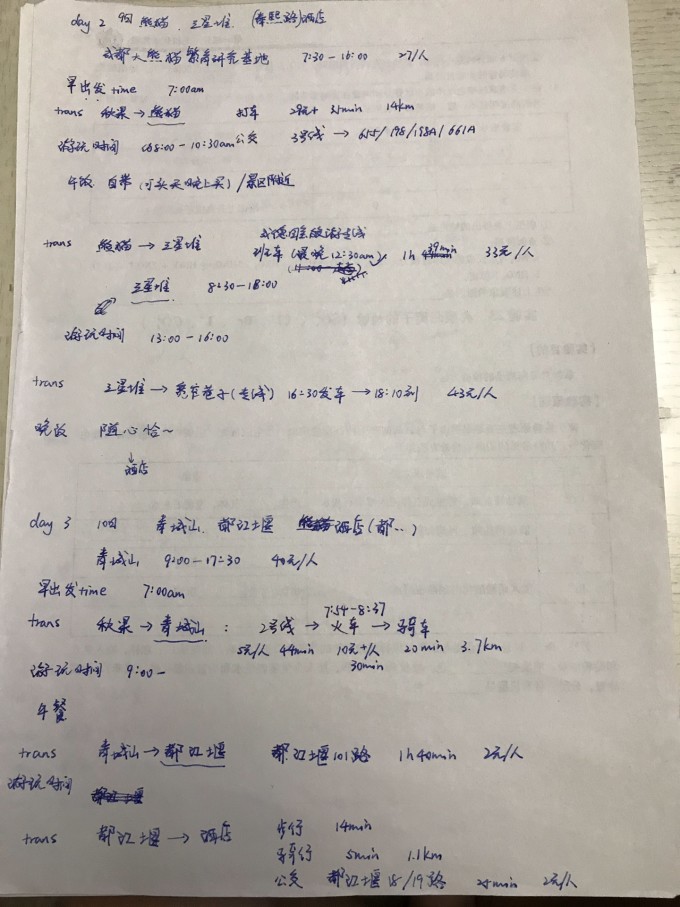 day 2 9日 熊猫、三星堆 (春熙路)酒店
成都大熊猫繁育研究基地 7:30-16:00 27/人
早出发time 7:00am
trans 秋果→熊猫 打车 29元+ 35min 14km
游玩时间 8:00-10:30am 公交 3号线 → 655/198/198A/661A
午饭 自带(可头天晚上买)/景区附近
trans 熊猫→三星堆 班车(最晚12:30am) 1h 33元/人
三星堆 8:30-18:00
游玩时间 13:00-16:00
trans 三星堆→宽窄巷子(专线) 16:30发车→18:10到 43元/人
晚饭 随心恰~
↓
酒店
day 3 10日 青城山、都江堰 酒店(都..)
青城山 9:00-17:30 40元/人
早出发time 7:00am
7:54-8:37
trans 秋果→青城山: 2号线 → 火车 → 骑车
5元/人 44min 10元+/人 20min 3.7km
30min
游玩时间 9:00-
午餐
trans 青城山→都江堰 都江堰101路 1h40min 2元/人
游玩时间 都江堰
trans 都江堰 → 酒店 步行 14min
骑行 5min 1.1km
公交 都江堰15/19路 25min 2元/人